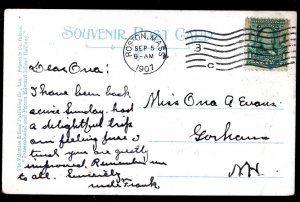 SOUVENIR POST CARD
BOSTON, MASS.
SEP 5
9-AM
1907
3
C
Dear Ona:
I have been back
since Sunday. had
a delightful trip
am feeling fine. I
trust you are greatly
improved. Remember me
to all. Sincerely
Frank
Miss Ona A Evans.
Gorham
N.H.